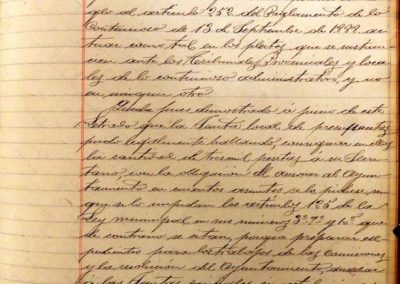 glo al artículo 25º del Reglamento de lo
Contencioso de 13 de Septiembre de 1888 ac-
tuar como tal, en los pleitos que se instruie-
sen ante los Tribunales Provinciales y loca-
les de lo contencioso administrativo, y no
en ningun otro
Queda pues demostrado á juicio de este
Letrado que la Junta local de
pudo legalmente hablando, consignar en ellos
la cantidad de tres mil pesetas a su Secre-
tario, con la obligacion de asesorar al Ayun-
tamiento en cuantos asuntos se lo pidiese, sin
que se lo impidan los artículos 125 de la
Ley municipal en sus numeros 3º 7º y 10º que
de contrario se citan, porque preparar ex-
pedientes para los trabajos de las Comisiones
y la resolucion del Ayuntamiento, auxiliar
a las Juntas